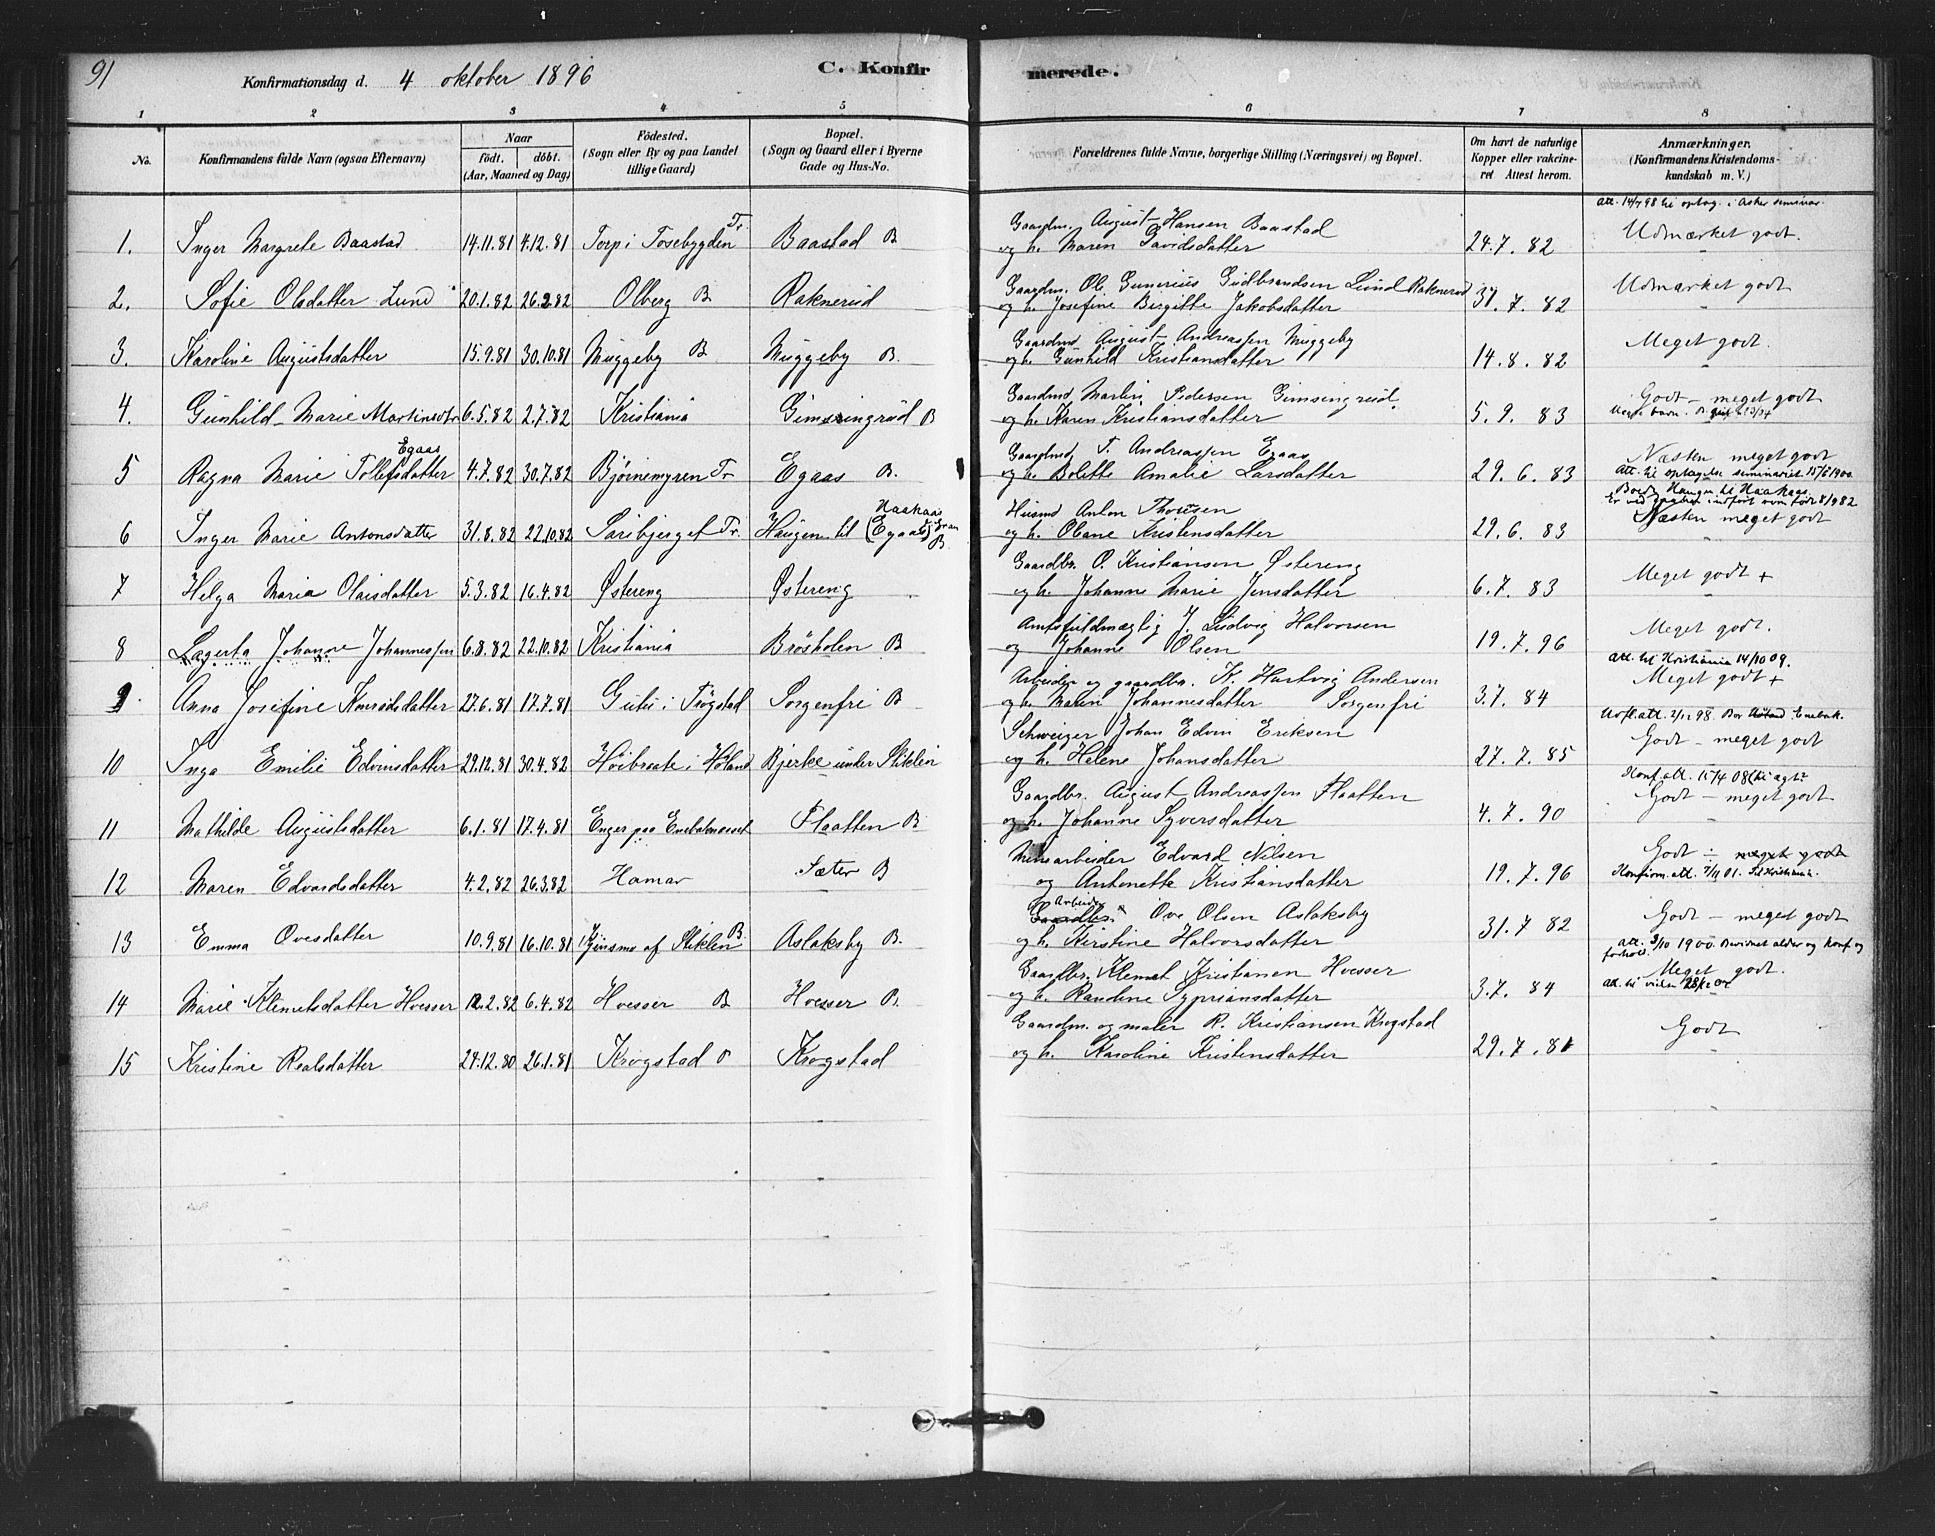 91
Konfirmationsdag d. 4 oktober 1896
C. Konfirmerede.
1 2 3 4 5 6 7 8
No.
Konfirmandens fulde Navn (ogsaa Efternavn)
Naar
födt. döbt.
(Aar, Maaned og Dag)
Födested.
(Sogn eller By og paa Landet
tillige Gaard)
Bopæl.
(Sogn og Gaard eller i Byerne
Gade og Hus-No.
Forældrenes fulde Navne, borgerlige Stilling (Næringsvei) og Bopæl.
Om havt de naturlige
Kopper eller vakcine-
ret Attest herom.
Anmærkninger.
(Konfirmandens Kristendoms-
kundskab m. V.)
Att. 14/7 98 til optag. i Asker seminar.
1. Inger Margrete Baastad 14.11.81 4.12.81 Torp i Tosebygden Tr. Baastad B
Gaardm. August Hansen Baastad
og h. Maren Gavrdsdatter 24.7.82 Udmærket godt.
2. Sofie Olsdatter Lund 20.1.82 26.2.82 Olberg B Raknerud
Gaardm. Ole Gunerius Gudbrandsen Lund Raknerud
og h. Josefine Birgitte Jakobsdatter 31.7.82 Udmærket godt
3. Karoline Augustsdatter 15.9.81 30.10.81 Muggeby B Muggeby B.
Gaardmd August Andreassen Muggeby
og h. Gunhild Kristiansdatter 14.8.82 Meget godt.
4. Gunhild Marie Martinsdtr 6.5.82 2.7.82 Kristiania Gimsingrud B
Gaardmd Martin Pedersen Gimsingrud
og h. Karen Kristiansdatter 5.9.83 Godt - meget godt
5 Ragna Marie Tollefsdatter Egaas 4.7.82 30.7.82 Bjørnemyren Tr Egaas B.
Gaardmd T. Andreassen Egaas
og h. Bolette Amalie Larsdatter 29.6.83 Næsten meget godt
Att. til optagelse seminariet 15/6 1900
6 Inger Marie Antonsdatter 31.8.82 22.10.82 Saribjerget Tr. Haugen til Haakaas (Egaas) B
Husmd Anton Thoresen
og h. Oliane Kristensdatter 29.6.83 Næsten meget godt
7 Helga Maria Olaisdatter 5.3.82 16.4.82 Østereng Østereng
Gaardbr. O. Kristiansen Østereng
og h. Johanne Marie Jensdatter 6.7.83 Meget godt +
8 Lagerta Johanne Johannessen 6.8.82 22.10.82 Kristiania Brösholen B
Amtsfuldmægtig J. Ludvig Halvorsen
og Johanne Olsen 19.7.96 Meget godt.
Att. til Kristiania 14/10 09.
9 Anna Josefine Konradsdatter 27.6.81 17.7.81 Gutu i Trøgstad Sorgenfri B
Arbeider og gaardbr. K. Hartvig Andersen
og h. Maren Johannesdatter Sorgenfri 3.7.84 Meget godt +
Udfl. att. 2/12 98. Bor Enebak.
10 Inga Emilie Edvinsdatter 29.12.81 30.4.82 Høibraate i Høland Bjerke under Stiklen
Schweizer Johan Edvin Eriksen
og h. Helene Johansdatter 27.7.85 Godt - meget godt
11 Mathilde Augustsdatter 6.1.81 17.4.81 Enger paa Enebaknesset Flaatten B
Gaardbr. August Andreassen Flaatten
og h. Johanne Syversdatter 4.7.90 Godt - meget godt
12 Maren Edvardsdatter 4.2.82 26.3.82 Hamar Sæter B
Minearbeider Edvard Nilsen
og Antonette Kristiansdatter 19.7.96 Godt - meget godt
Konfirm. att. 7/11 01. Til Kristiania.
13 Emma Ovesdatter 10.9.81 16.10.81 Kjinsmo af Stiklen B. Aslaksby B.
Gaardbr. Arbeider Ove Olsen Aslaksby
og h. Kirstine Halvorsdatter 31.7 82 Godt - meget godt
14 Marie Klemetsdatter Hvesser 12.2.82 6.4.82 Hvesser B Hvesser B.
Gaardbr. Klemet Kristiansen Hvesser
og h. Randine Sypriansdatter 3.7.84 Meget godt.
15 Kristine Realsdatter 24.12.80 26.1.81 Krogstad Krogstad
Gaardm. og maler R. Kristiansen Krogstad
og h. Karoline Kristensdatter 29.7.81 Godt